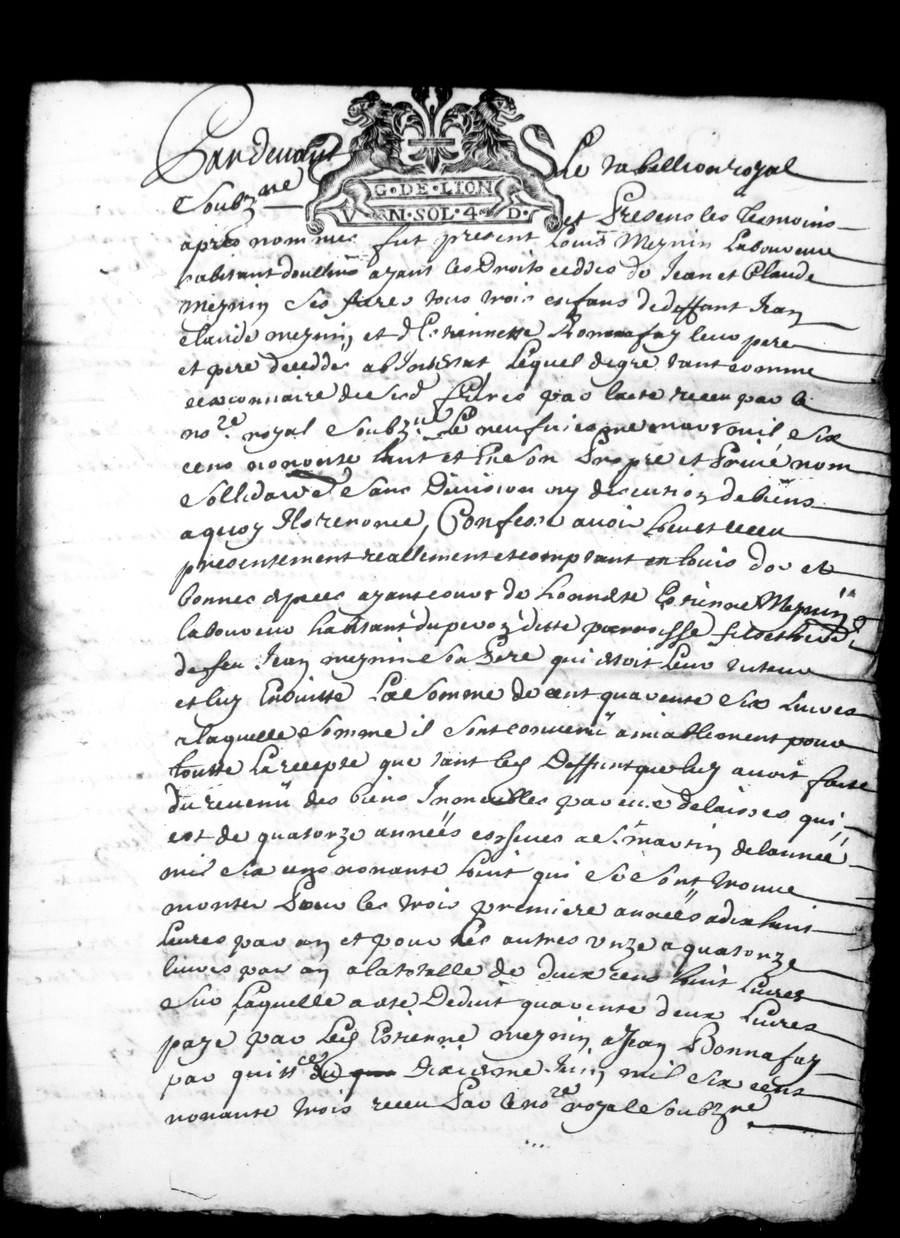 Pardevant Le tabellion royal
G·DE·LION
soubzne
VN·SOL·4·D·
et Presens les tesmoins
apres nommes fut present Louis Meynin Laboureur
habitant ayant les Droits ceddes de Jean et Claude
meynin ses freres tous trois enfans de deffunt Jean
claude meynin et d'Estiennette Bonnafay leur pere
et pere decedde abJntestat Lequel de gre tant comme
cessionnaire de sesd freres par lacte receu par le
nore royal soubzne Le neufviesme mars mil six
cens nonante huit et En son Propre et Prive nom
sollidaire sans Division ny discution de biens
a quoy Jl renonce, Confesse avoir heu et receu
presentement reallement et comptant en Louis d'or et
bonnes especes ayant cours de honneste Estienne Meynin
laboureur habitant ditte parroisse fils et
de feu Jean meynin son Pere qui estoit Leur tuteur
et luy Ensuitte La somme de cent quarente six Livres
a laquelle somme il sont convenu amiablement pour
toutte La recepte que tant led Deffunt que luy avoit faite
du revenu des biens Jmmeubles par eux delaisses qui
est de quatorze annees eschues a St martin de lannee
mil six cens nonante huit qui se sont trouve
monter Pour les trois premiere annees a dix huit
Livres par an et pour Les autres unze a quatorze
livres par an a la totalle de deux cens huit Livres
sur Laquelle a este Deduit quarente deux Livres
paye par Led Estienne meynin a Jean Bonnafay
par quittce du Dixiesme Juin mil six cens
nonante trois receu Par le nore royal soubzne